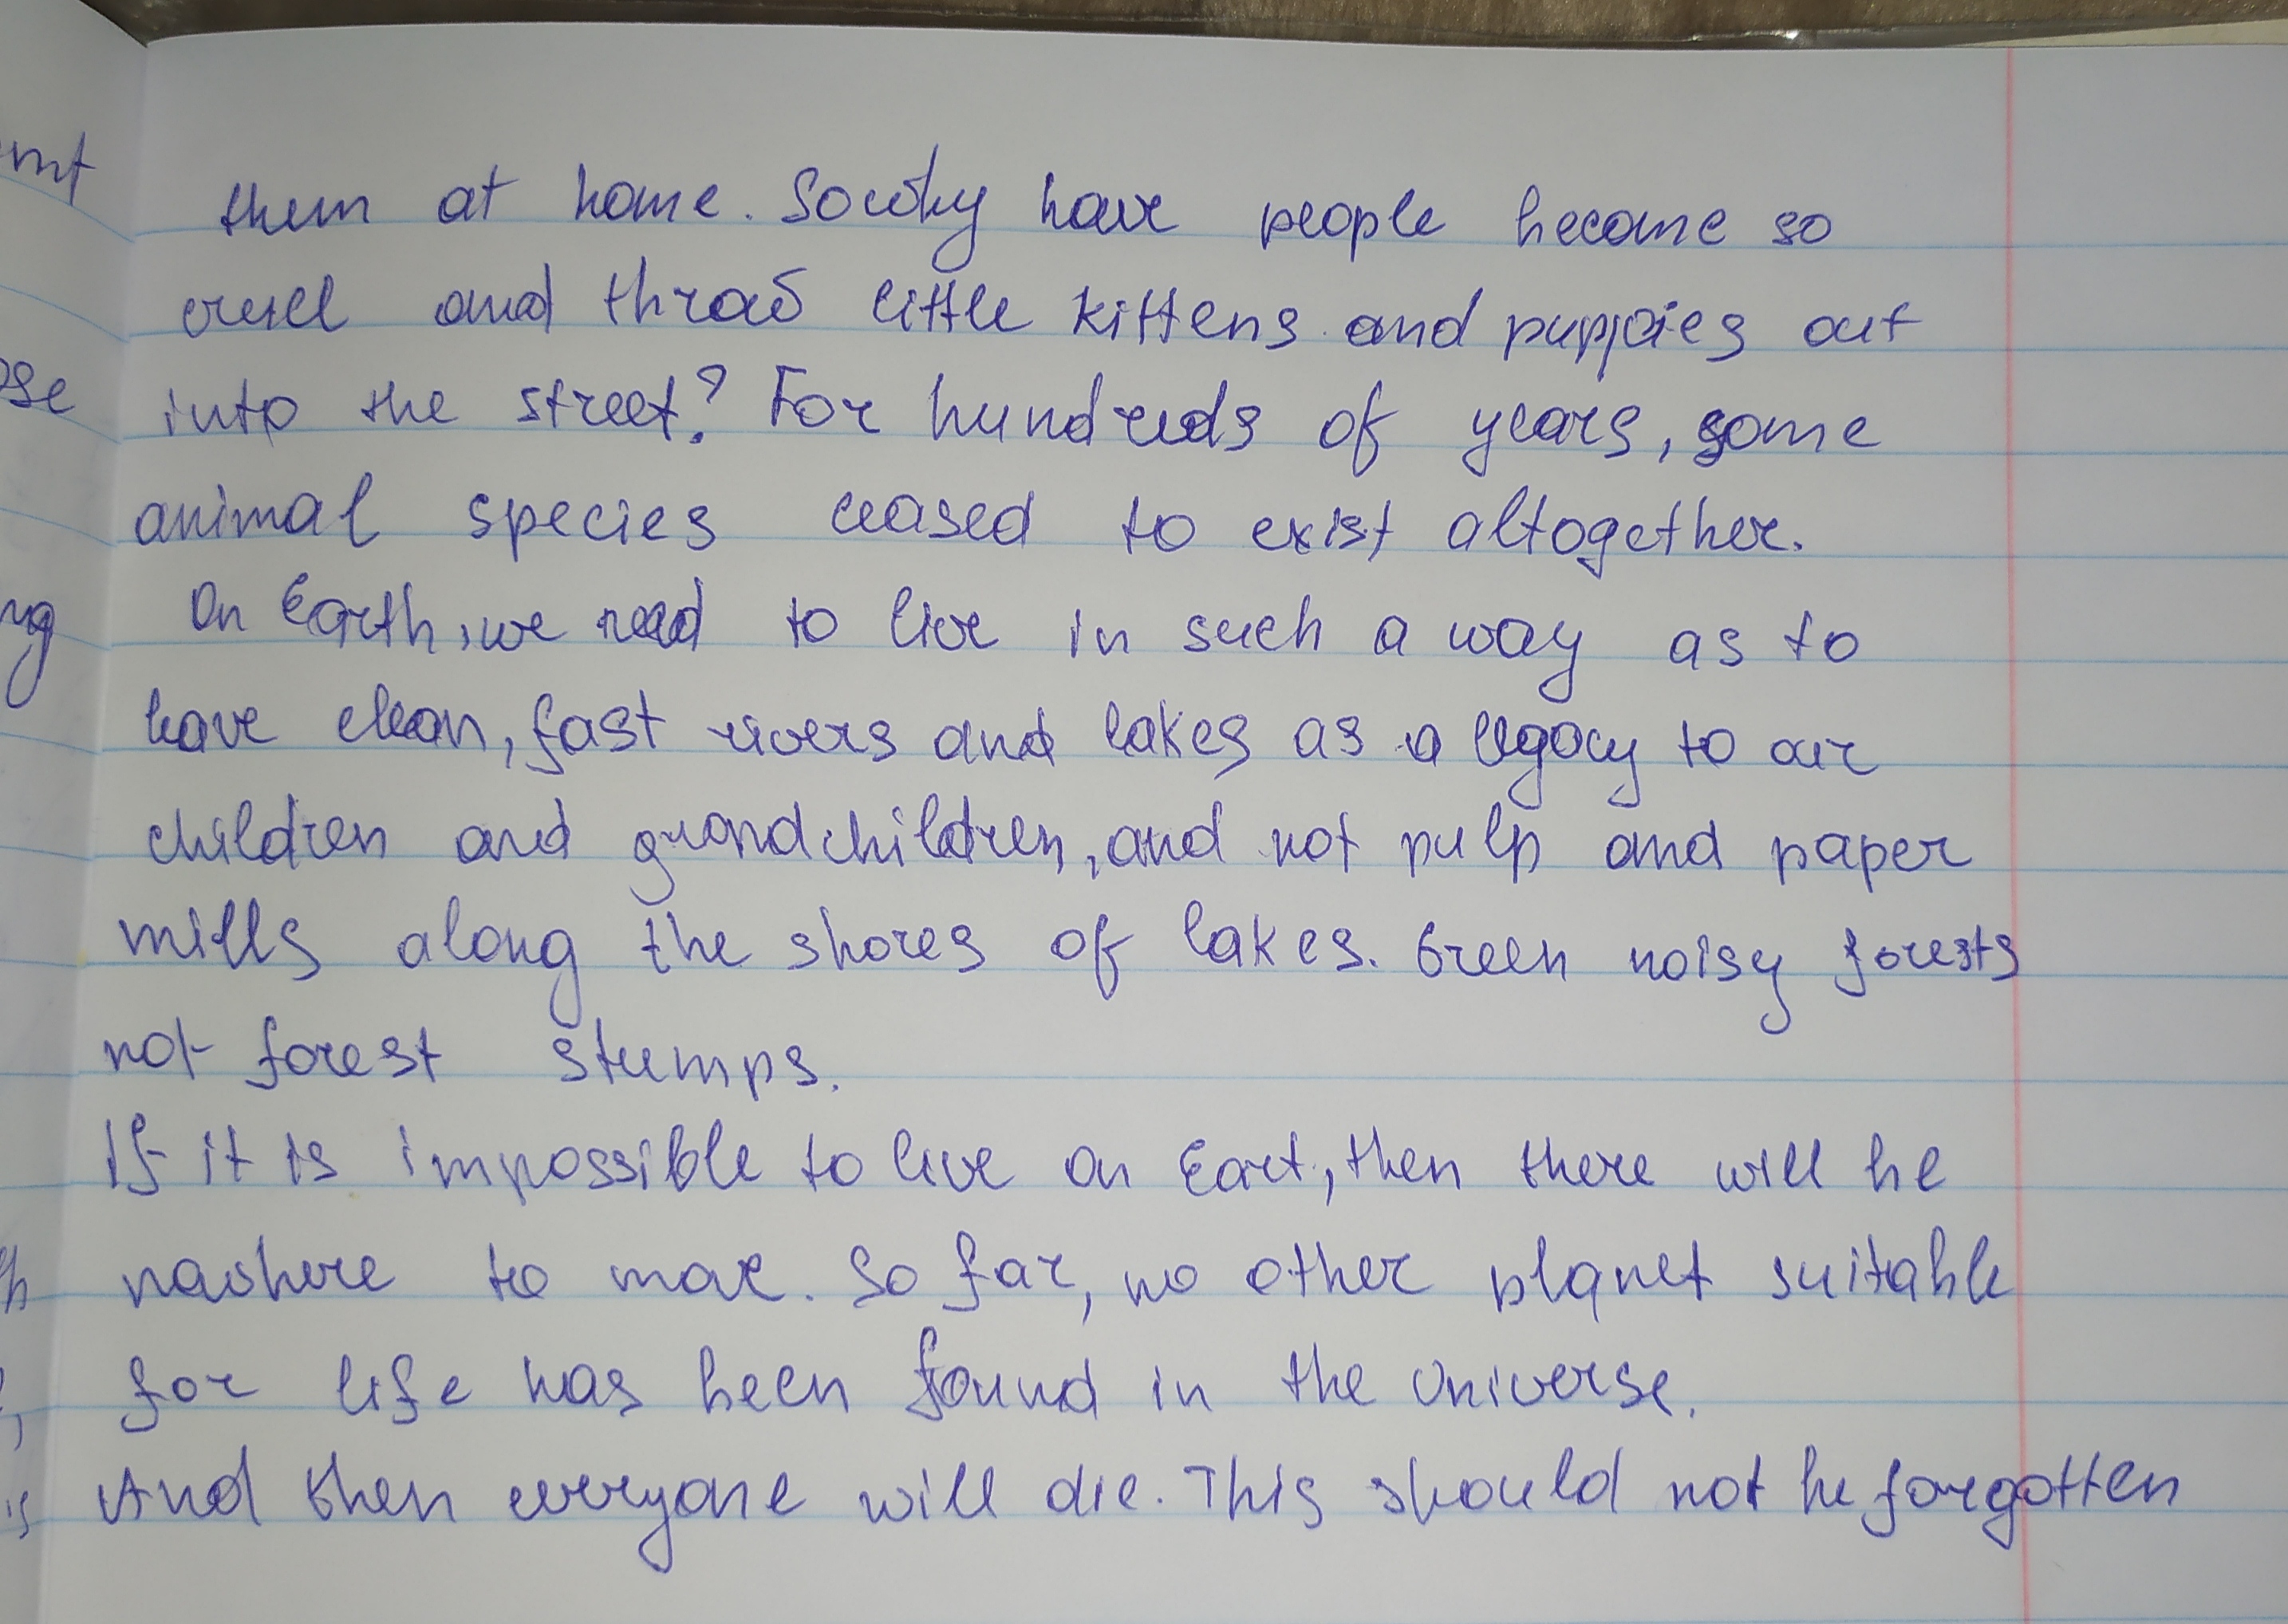 them at home. So why have people become so
cruel and throw little kittens and puppies out
into the street? For hundreds of years, some
animal species ceased to exist altogether.
On Earth, we need to live in such a way as to
have clean, fast rivers and lakes as a legacy to our
children and grandchildren, and not pulp and paper
mills along the shores of lakes. Green noisy forests
not forest stumps.
If it is impossible to live on Eart, then there will be
nowhere to move. So far, no other planet suitable
for life has been found in the Universe.
And then everyone will die. This should not be forgotten